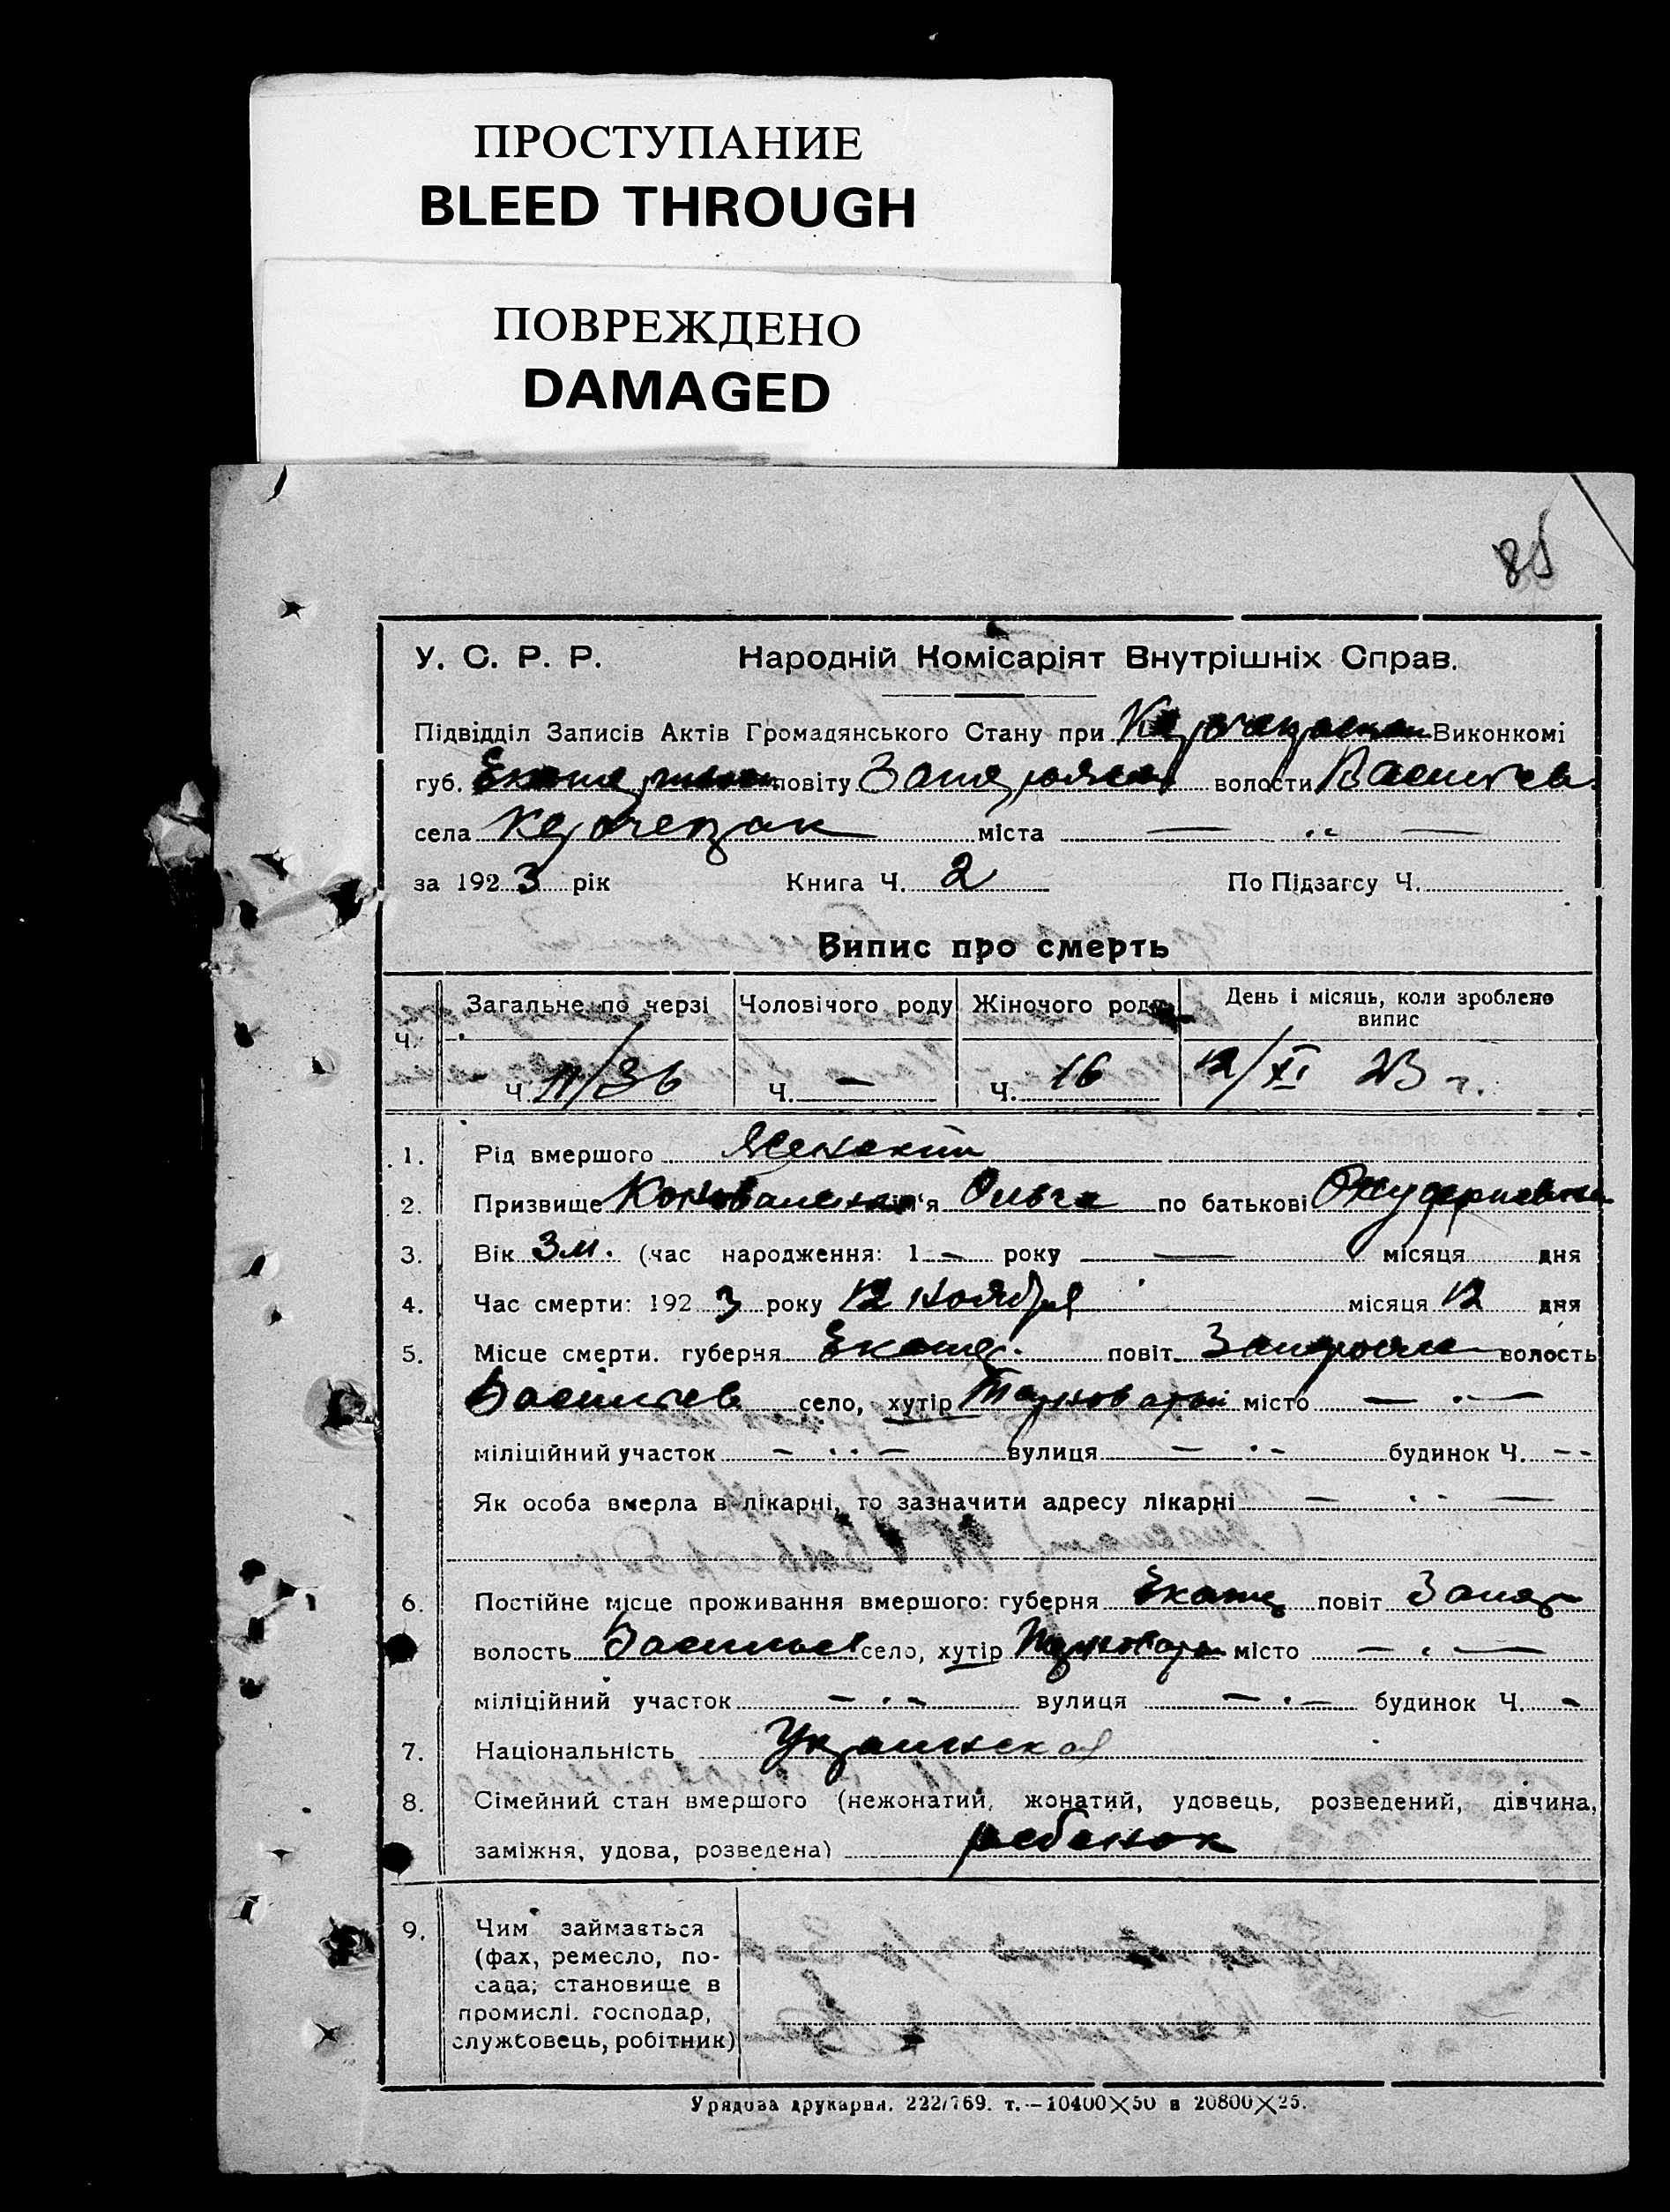 ПРОСТУПАНИЕ
BLEED THROUGH
ПОВРЕЖДЕНО
DAMAGED
85
У. С. Р. Р. Народній Комісаріят Внутрішніх Справ.
Підвідділ Записів Актів Громадянського Стану при Виконкомі
губ. повіту волости
села міста — „ —
за 1923 рік Книга Ч. 2 По Підзагсу Ч.
Випис про смерть
Ч. Загальне по черзі Чоловічого роду Жіночого роду День і місяць, коли зроблено
випис
Ч. 11/36 Ч. — Ч. 16 12/XI 23 г.
1. Рід вмершого Женский
2. Призвище ім'я Ольга по батькові
3. Вік 3 м. (час народження: 1 — року — місяця дня
4. Час смерти: 1923 року 12 ноября місяця 12 дня
5. Місце смерти. губерня Екатер. повіт волость
село, хутір місто — „ —
міліційний участок — „ — вулиця — „ — будинок Ч. — —
Як особа вмерла в лікарні, то зазначити адресу лікарні — „ —
6. Постійне місце проживання вмершого: губерня Екатер повіт
волость село, хутір місто — „ —
міліційний участок — „ — вулиця — „ — будинок Ч. —
7. Національність Украинская
8. Сімейний стан вмершого (нежонатий, жонатий, удовець, розведений, дівчина,
заміжня, удова, розведена) ребенок
9. Чим займається
(фах, ремесло, по-
сада; становище в
промислі. господар,
службовець, робітник)
Урядова друкарня. 222/769. т.—10400×50 в 20800×25.